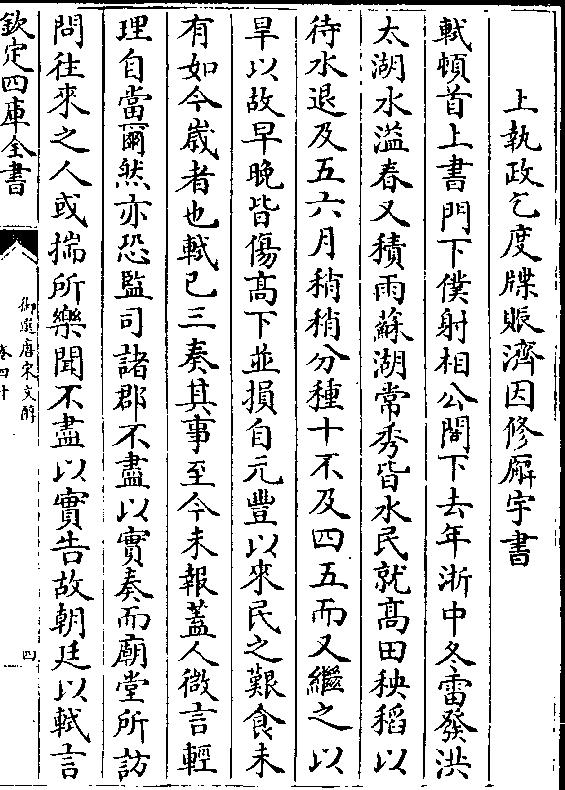 上執政乞度牒賑濟因修廨宇書
軾頓首上書門下僕射相公閤下去年浙中冬雷發洪
太湖水溢春又積雨蘇湖常秀皆水民就高田秧稻以
待水退及五六月稍稍分種十不及四五而又繼之以
旱以故早晚皆傷高下並損自元豐以來民之艱食未
有如今歲者也軾已三奏其事至今未報蓋人微言輕
理自當爾然亦恐監司諸郡不盡以實奏而廟堂所訪
問往來之人或揣所樂聞不盡以實告故朝廷以軾言
欽定四庫全書
御選唐宋文醇
卷四十
四